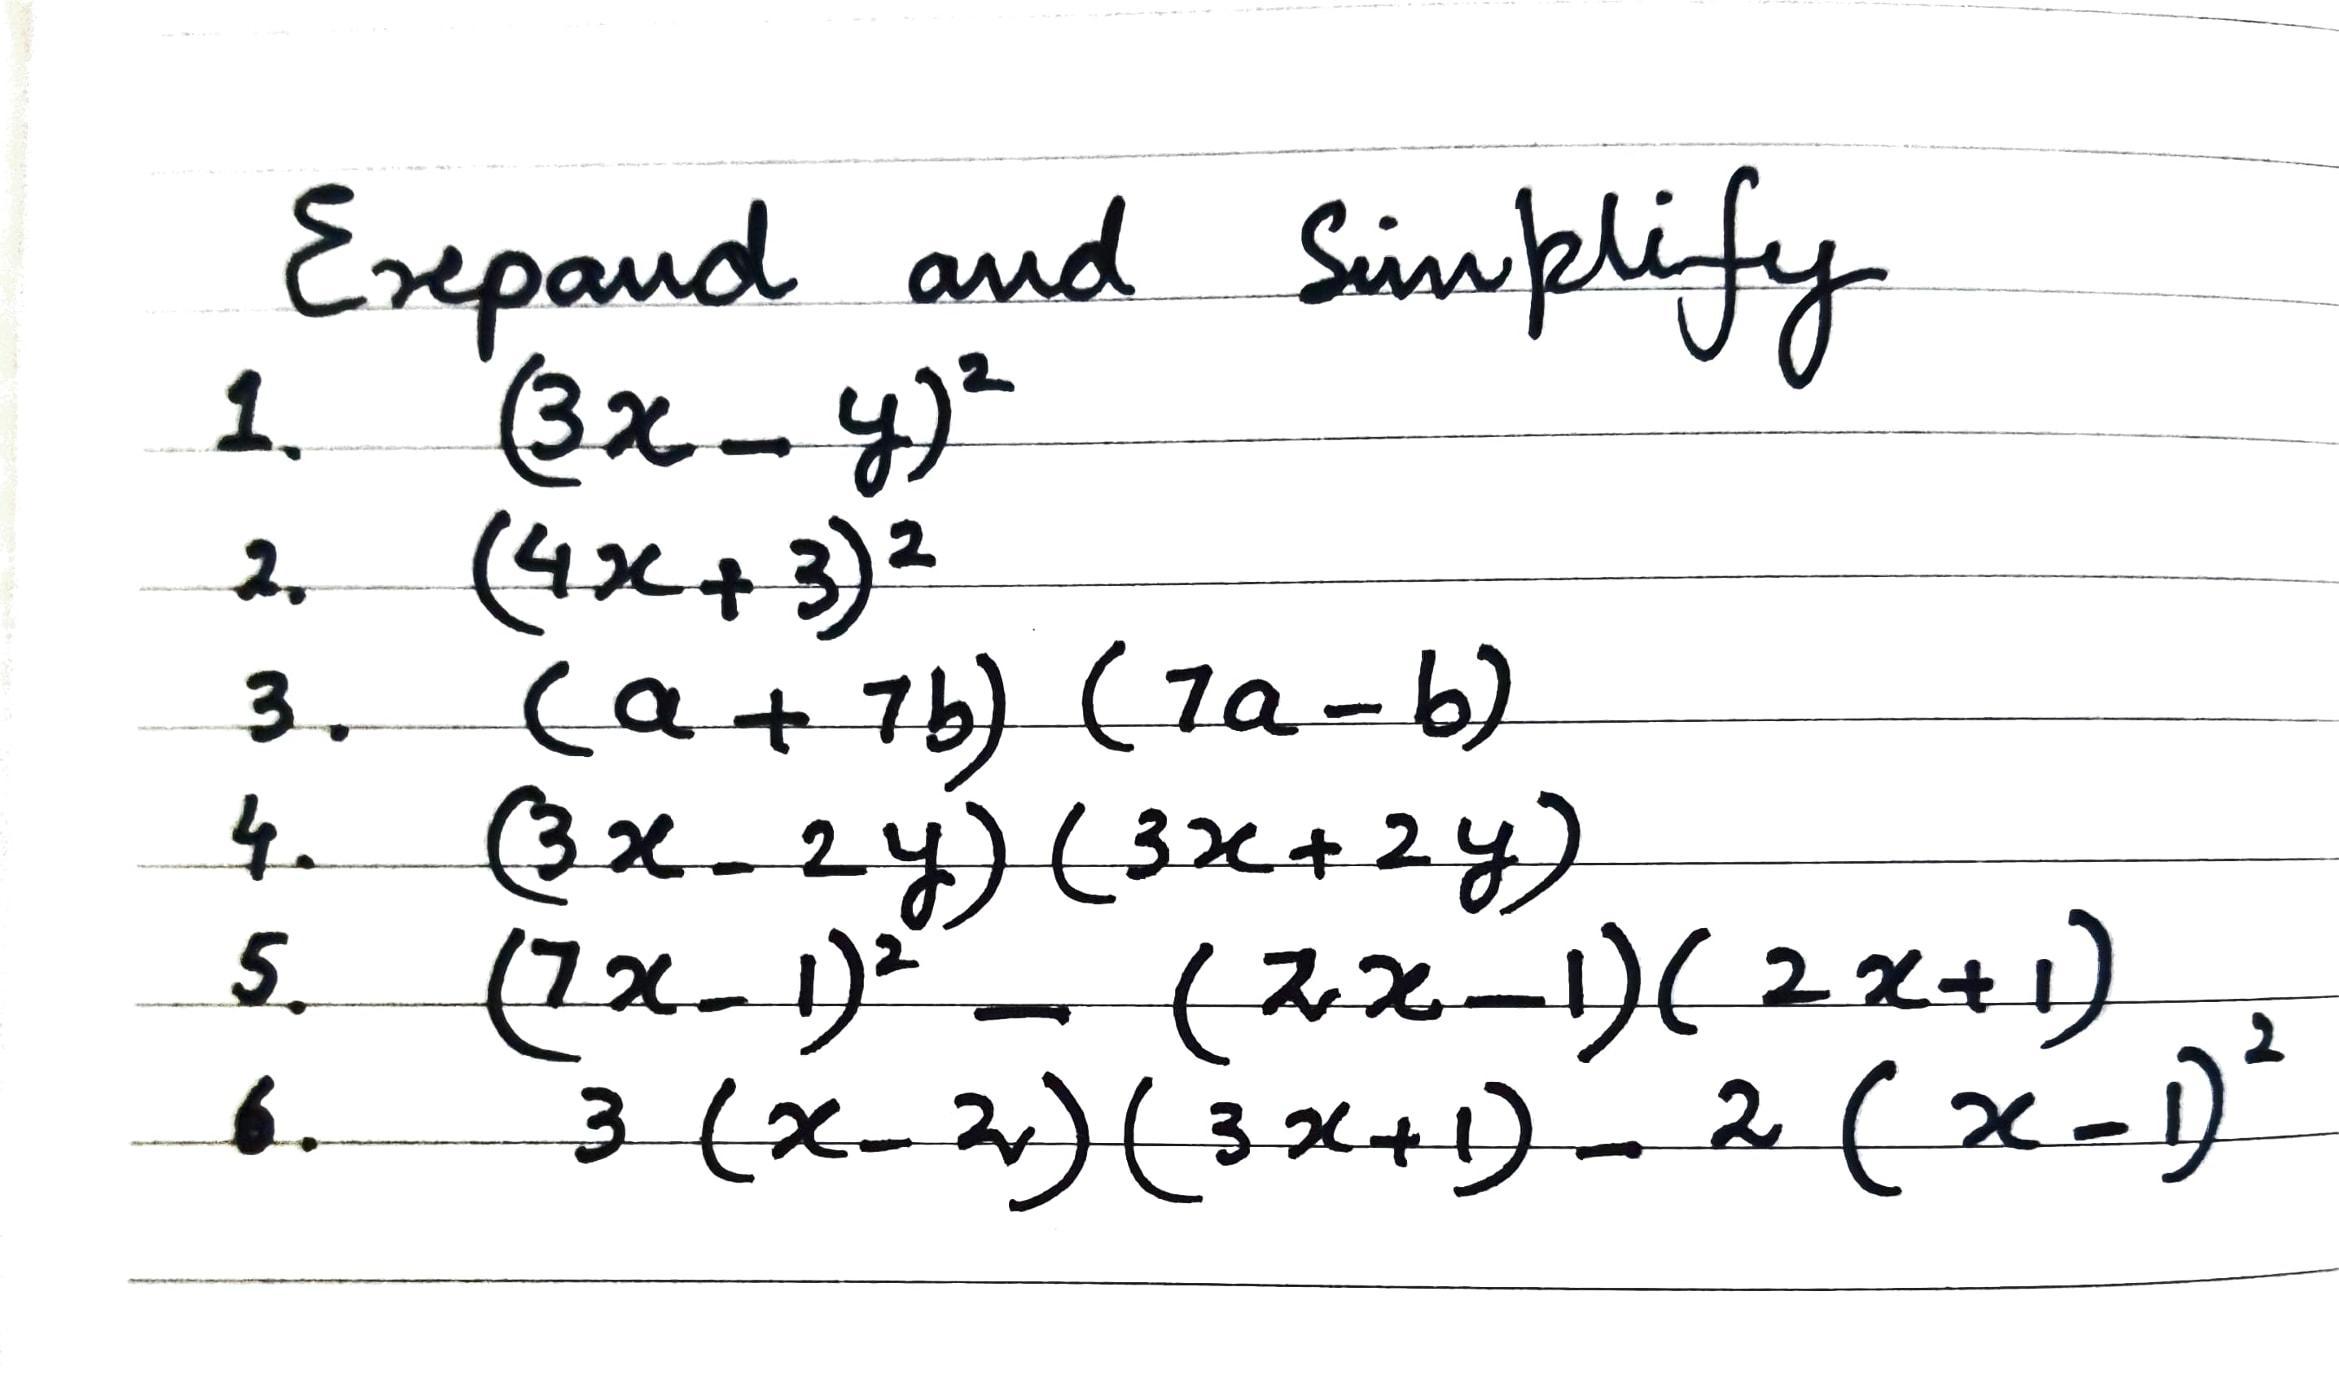 Expand and Simplify
1. (3x - y)²
2. (4x + 3)²
3. (a + 7b) (7a - b)
4. (3x - 2y) (3x + 2y)
5. (7x - 1)² - (2x - 1)(2x + 1)
6. 3 (x - 2)(3x + 1) - 2 (x - 1)²